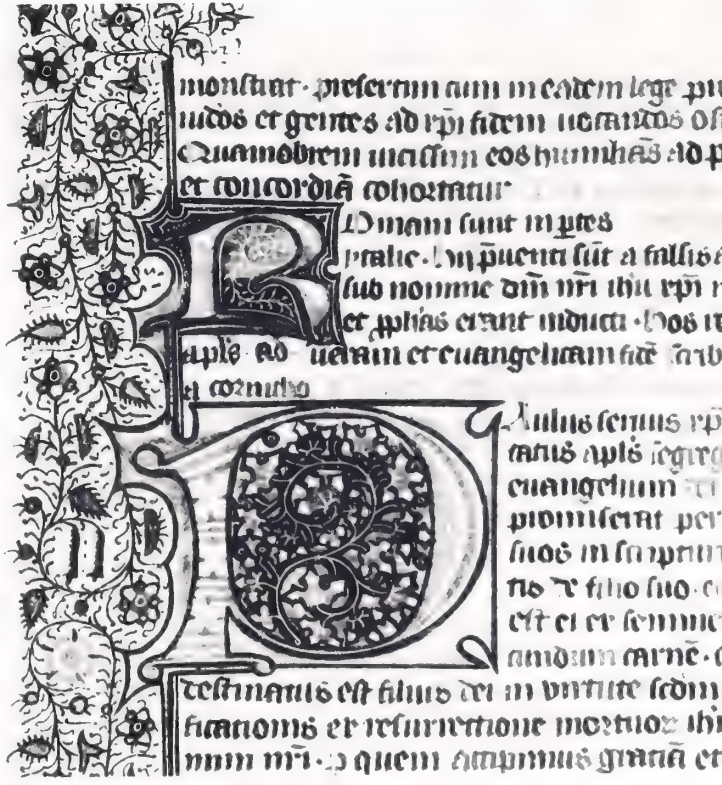 monstrat · presertim cum in eadem lege
iudos et gentes ad xpi fidem uocandos
Quamobrem uicissim eos humilians ad
et concordiā cohortatur
ROmani sunt in ꝑtes
ytalie · hij p̄uenti sūt a falsis
sub nomine dn̄i nr̄i ihu xpi
et ꝓphās erant inducti · hos
apl̄s ad ueram et euangelicam fidē
a corintho
PAulus seruus xp̄i
catus apl̄s segreg
euangelium
promiserat per
suos in scriptur
tis de filio suo ·
est ei ex semine
cundum carnē ·
destinatus est filius dei in virtute scdm
ficationis ex resurrectione mortuoꝝ ihu
num nr̄i · p quem accipimus gratiā et